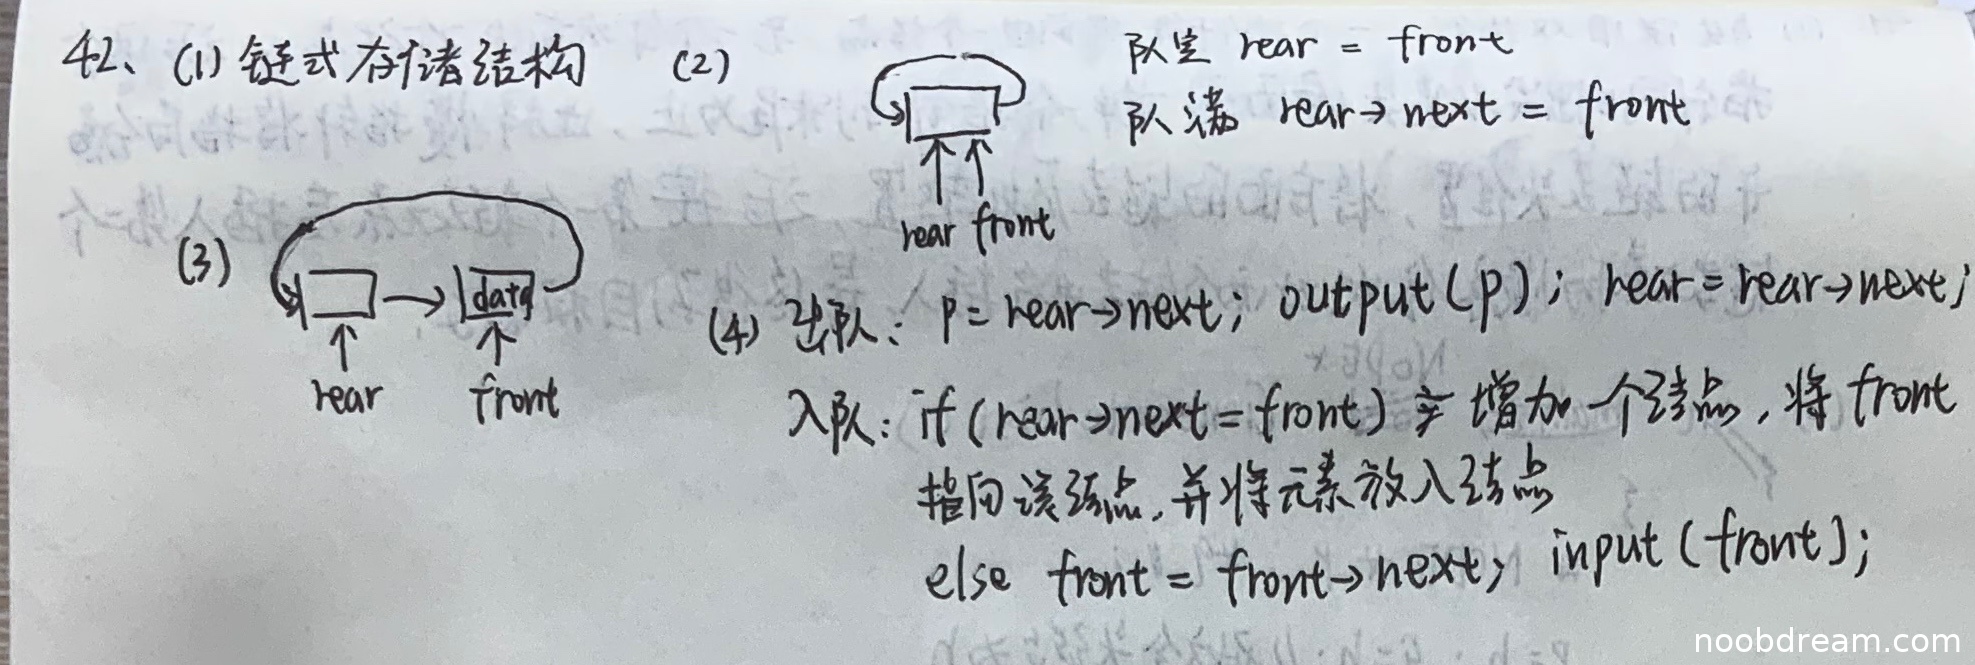 42、(1) 链式存储结构
(2)
队空 rear = front
队满 rear→next = front
rear front
(3)
data
rear front
(4) 出队: p = rear→next; output(p); rear = rear→next;
入队: if (rear→next = front) 增加一个结点, 将 front
指向该结点, 并将元素放入结点
else front = front→next; input(front);
noobdream.com